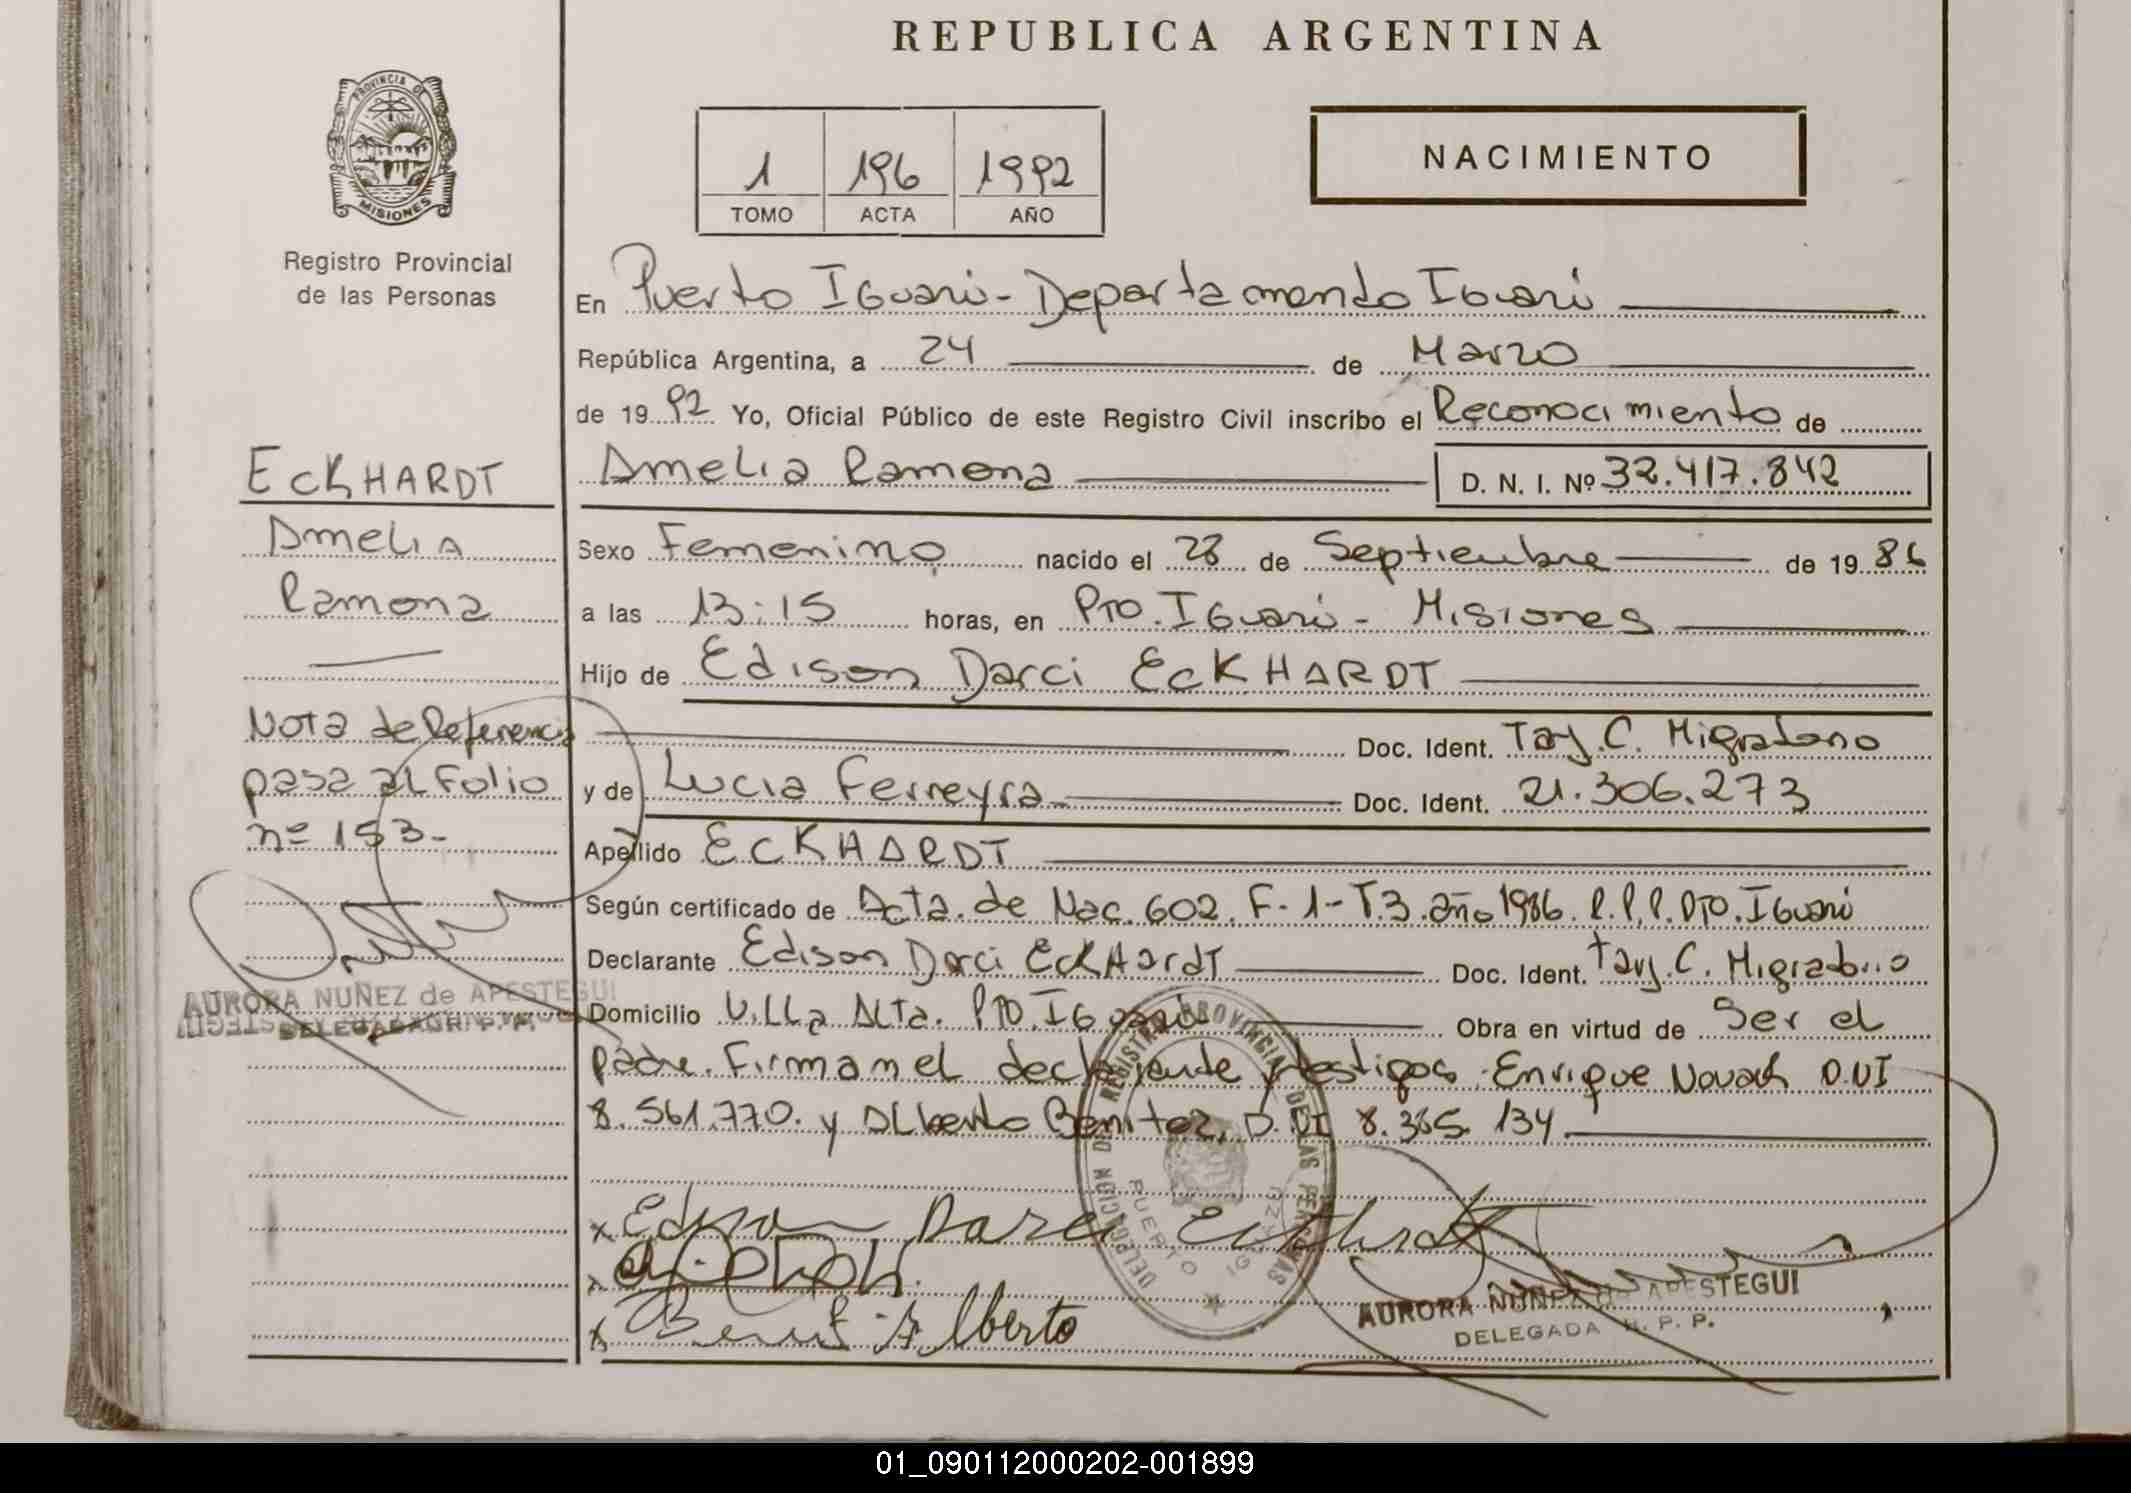 REPUBLICA ARGENTINA
PROVINCIA DE
MISIONES
Registro Provincial
de las Personas
1 196 1992
TOMO ACTA AÑO
NACIMIENTO
En Puerto Iguazú - Departamento Iguazú
República Argentina, a 24 de Marzo
de 1992 Yo, Oficial Público de este Registro Civil inscribo el Reconocimiento de
Amelia Ramona D. N. I. Nº 32.417.842
Sexo Femenino nacido el 28 de Septiembre de 1986
a las 13:15 horas, en Pto. Iguazú - Misiones
Hijo de Edison Darci ECKHARDT
Doc. Ident. Tarj. C. Migratorio
y de Lucia Ferreyra Doc. Ident. 21.306.273
Apellido ECKHARDT
Según certificado de Acta. de Nac. 602. F. 1 - T. 3. año 1986. R. P. P. Pto. Iguazú
Declarante Edison Darci EckHardt Doc. Ident. Tarj. C. Migratorio
Domicilio Villa Alta. Pto. Iguazú Obra en virtud de Ser el
padre. Firman el declarante y testigos. Enrique D.N.I
8.561.770. y Alberto Benitez. D.NI 8.365.134
ECKHARDT
Amelia
Ramona
Nota de Referencia
pasa al Folio
nº 153-
AURORA NUÑEZ de APESTEGUI
DELEGADA R. P. P.
x Edison Darci Eckhardt
x
x Benit Alberto
DELEGACION DEL REGISTRO PROVINCIAL DE LAS PERSONAS
PUERTO IGUAZU
AURORA NUÑEZ de APESTEGUI
DELEGADA R. P. P.
01_090112000202-001899